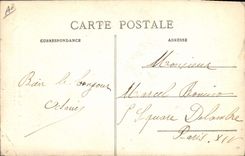 CARTE POSTALE
CORRESPONDANCE
ADRESSE
Monsieur
Bien le bonjour
Marcel
Square Delambre
Paris XIV